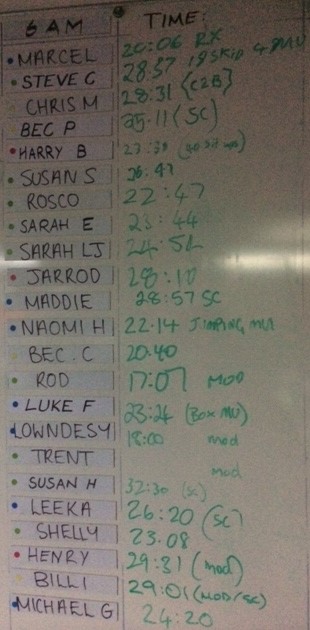 6 AM TIME:
MARCEL 20:06 RX
STEVE C 28:37 19 Skip 4 BMU
CHRIS M 28:31 {C2B}
BEC P 35.11 (SC)
HARRY B 27:38
SUSAN S 26.47
ROSCO 22:47
SARAH E 23:44
SARAH LJ 24:52
JARROD 28:10
MADDIE 28:57 SC
NAOMI H 22.14 JUMPING MU
BEC.C 20.40
ROD 17:07 MOD
LUKE F 23:24 (Box MU)
LOWNDESY 18:00 mod
TRENT mod
SUSAN H 32:30 (sc)
LEEKA 26:20 (SC)
SHELLY 23.08
HENRY 29:31 (mod)
BILLI 29:01 (MOD/SC)
MICHAEL G 24:20